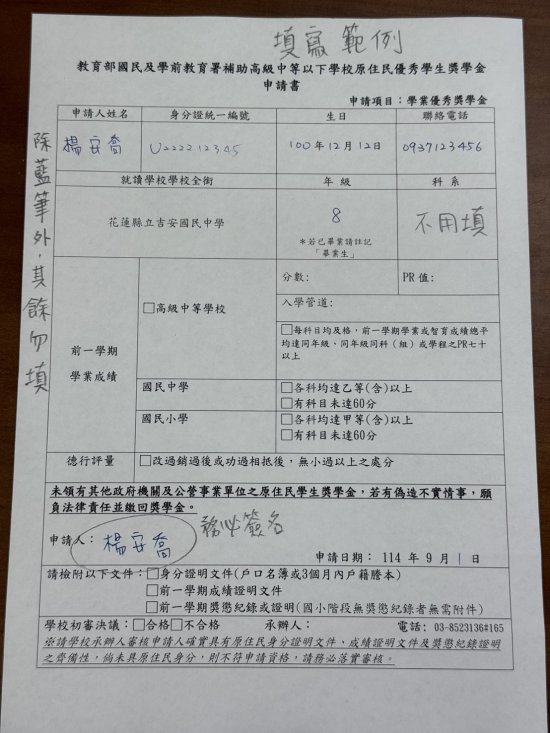 填寫範例
教育部國民及學前教育署補助高級中等以下學校原住民優秀學生獎學金
申請書
申請項目：學業優秀獎學金
申請人姓名 身分證統一編號 生日 聯絡電話
楊安喬 U222212345 100年12月12日 0937123456
就讀學校學校全銜 年級 科系
花蓮縣立吉安國民中學 8 不用填
＊若已畢業請註記
「畢業生」
除藍筆外，其餘勿填
前一學期
學業成績
□高級中等學校
分數： PR值：
入學管道：
□每科目均及格，前一學期學業或智育成績總平
均達同年級、同年級同科（組）或學程之PR七十
以上
國民中學 □各科均達乙等(含)以上
□有科目未達60分
國民小學 □各科均達甲等(含)以上
□有科目未達60分
德行評量 □改過銷過後或功過相抵後，無小過以上之處分
未領有其他政府機關及公營事業單位之原住民學生獎學金，若有偽造不實情事，願
負法律責任並繳回獎學金。
務必簽名
申請人： 楊安喬
申請日期： 114 年 9 月 1 日
請檢附以下文件：□身分證明文件(戶口名簿或3個月內戶籍謄本)
□前一學期成績證明文件
□前一學期獎懲紀錄或證明(國小階段無獎懲紀錄者無需附件)
學校初審決議：□合格□不合格 承辦人： 電話：03-8523136#165
※請學校承辦人審核申請人確實具有原住民身分證明文件、成績證明文件及獎懲紀錄證明
之齊備性，倘未具原住民身分，則不符申請資格，請務必落實審核。